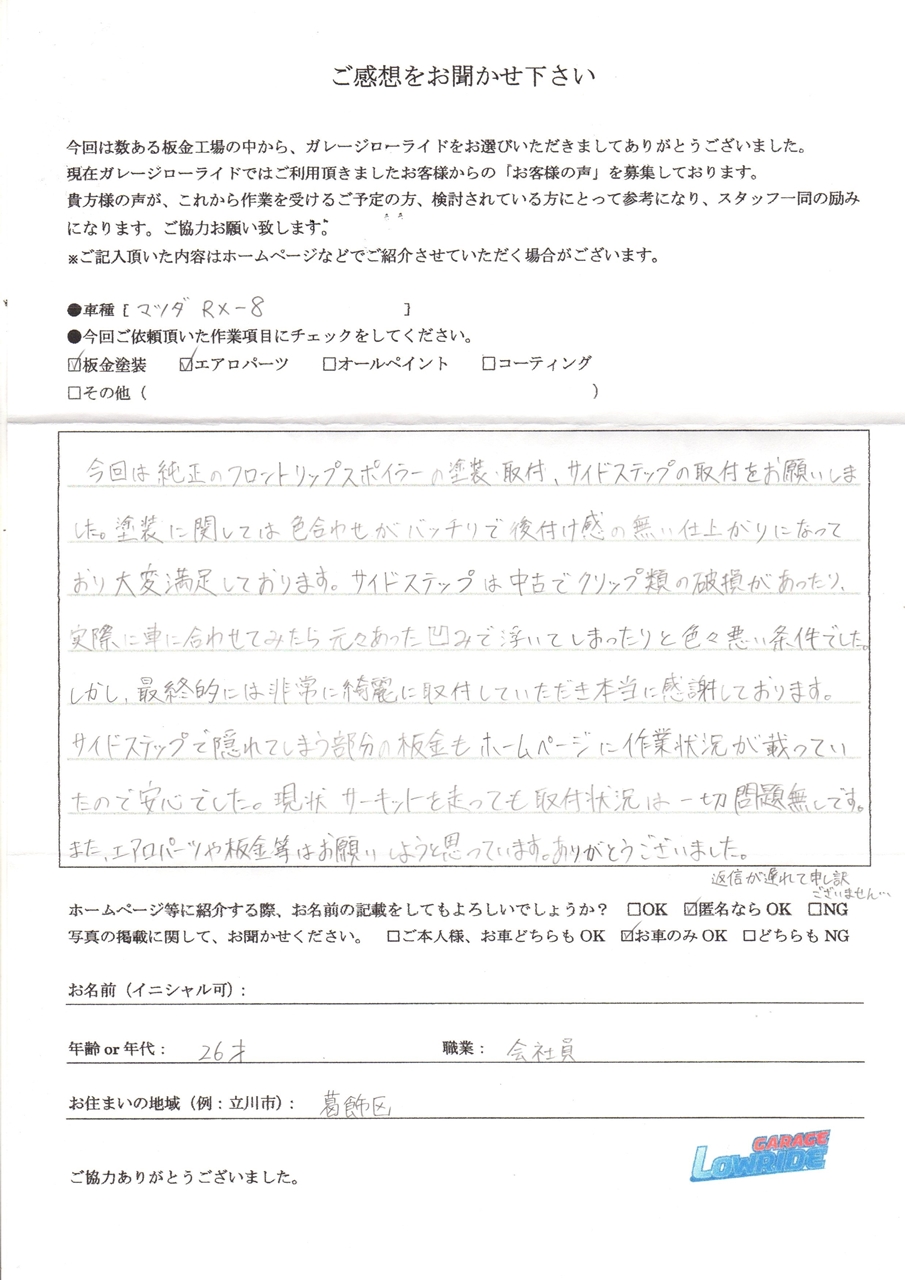 ご感想をお聞かせ下さい
今回は数ある板金工場の中から、ガレージローライドをお選びいただきましてありがとうございました。
現在ガレージローライドではご利用頂きましたお客様からの「お客様の声」を募集しております。
貴方様の声が、これから作業を受けるご予定の方、検討されている方にとって参考になり、スタッフ一同の励み
になります。ご協力お願い致します。
※ご記入頂いた内容はホームページなどでご紹介させていただく場合がございます。
●車種 [ マツダ RX-8 ]
●今回ご依頼頂いた作業項目にチェックをしてください。
☑板金塗装 ☑エアロパーツ □オールペイント □コーティング
□その他（ ）
今回は純正のフロントリップスポイラーの塗装・取付、サイドステップの取付をお願いしま
した。塗装に関しては色合わせがバッチリで後付け感の無い仕上がりになって
おり大変満足しております。サイドステップは中古でクリップ類の破損があったり、
実際に車に合わせてみたら元々あった凹みで浮いてしまったりと色々悪い条件でした。
しかし、最終的には非常に綺麗に取付していただき本当に感謝しております。
サイドステップで隠れてしまう部分の板金もホームページに作業状況が載ってい
たので安心でした。現状サーキットを走っても取付状況は一切問題無しです。
また、エアロパーツや板金等はお願いしようと思っています。ありがとうございました。
返信が遅れて申し訳
ございません…
ホームページ等に紹介する際、お名前の記載をしてもよろしいでしょうか？ □OK ☑匿名なら OK □NG
写真の掲載に関して、お聞かせください。 □ご本人様、お車どちらも OK ☑お車のみ OK □どちらも NG
お名前（イニシャル可）:
年齢 or 年代： 26才 職業： 会社員
お住まいの地域（例：立川市）: 葛飾区
GARAGE
LOWRIDE
ご協力ありがとうございました。